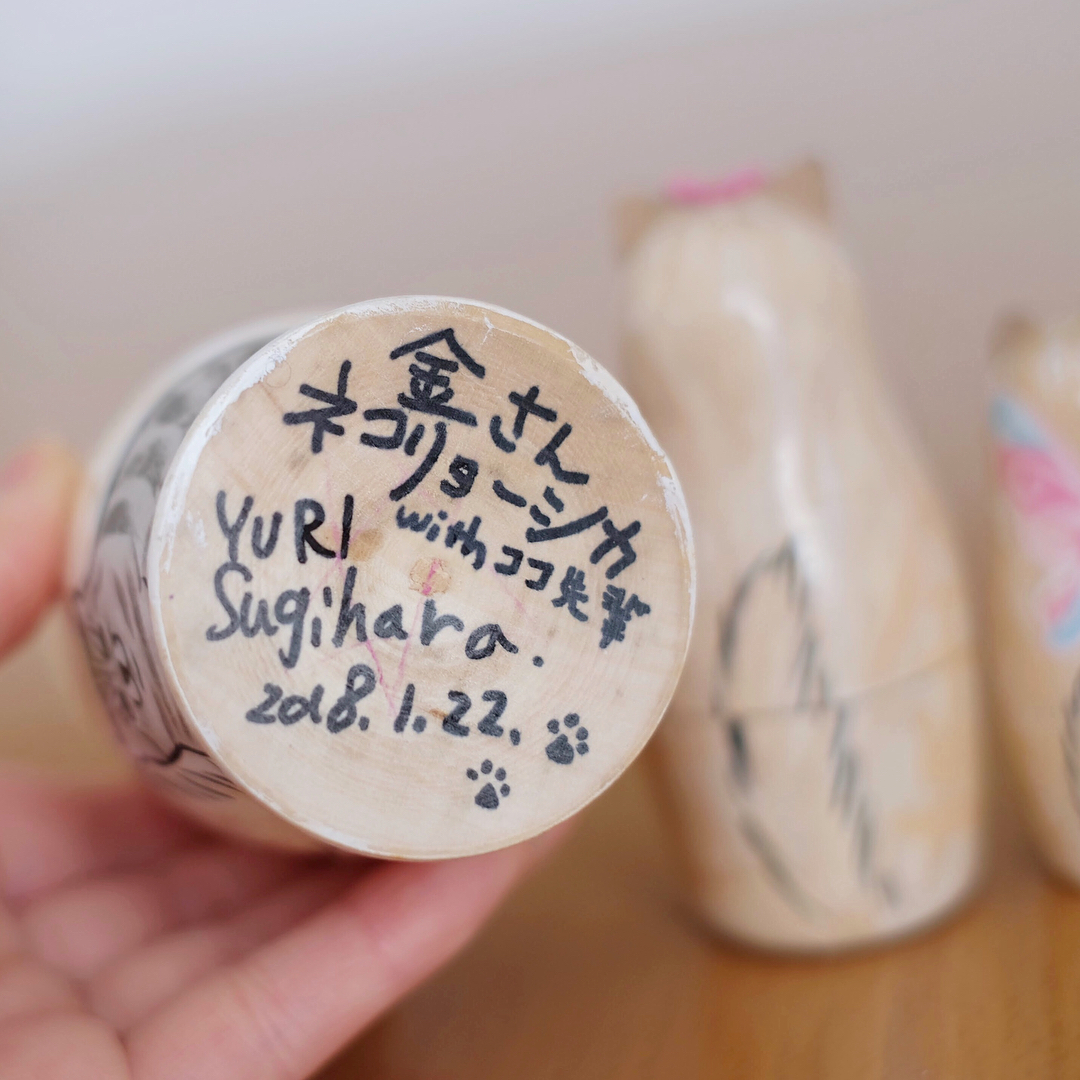 金さん
ネコリョーシカ
with ココ先輩
YURI
Sugihara.
2018.1.22.